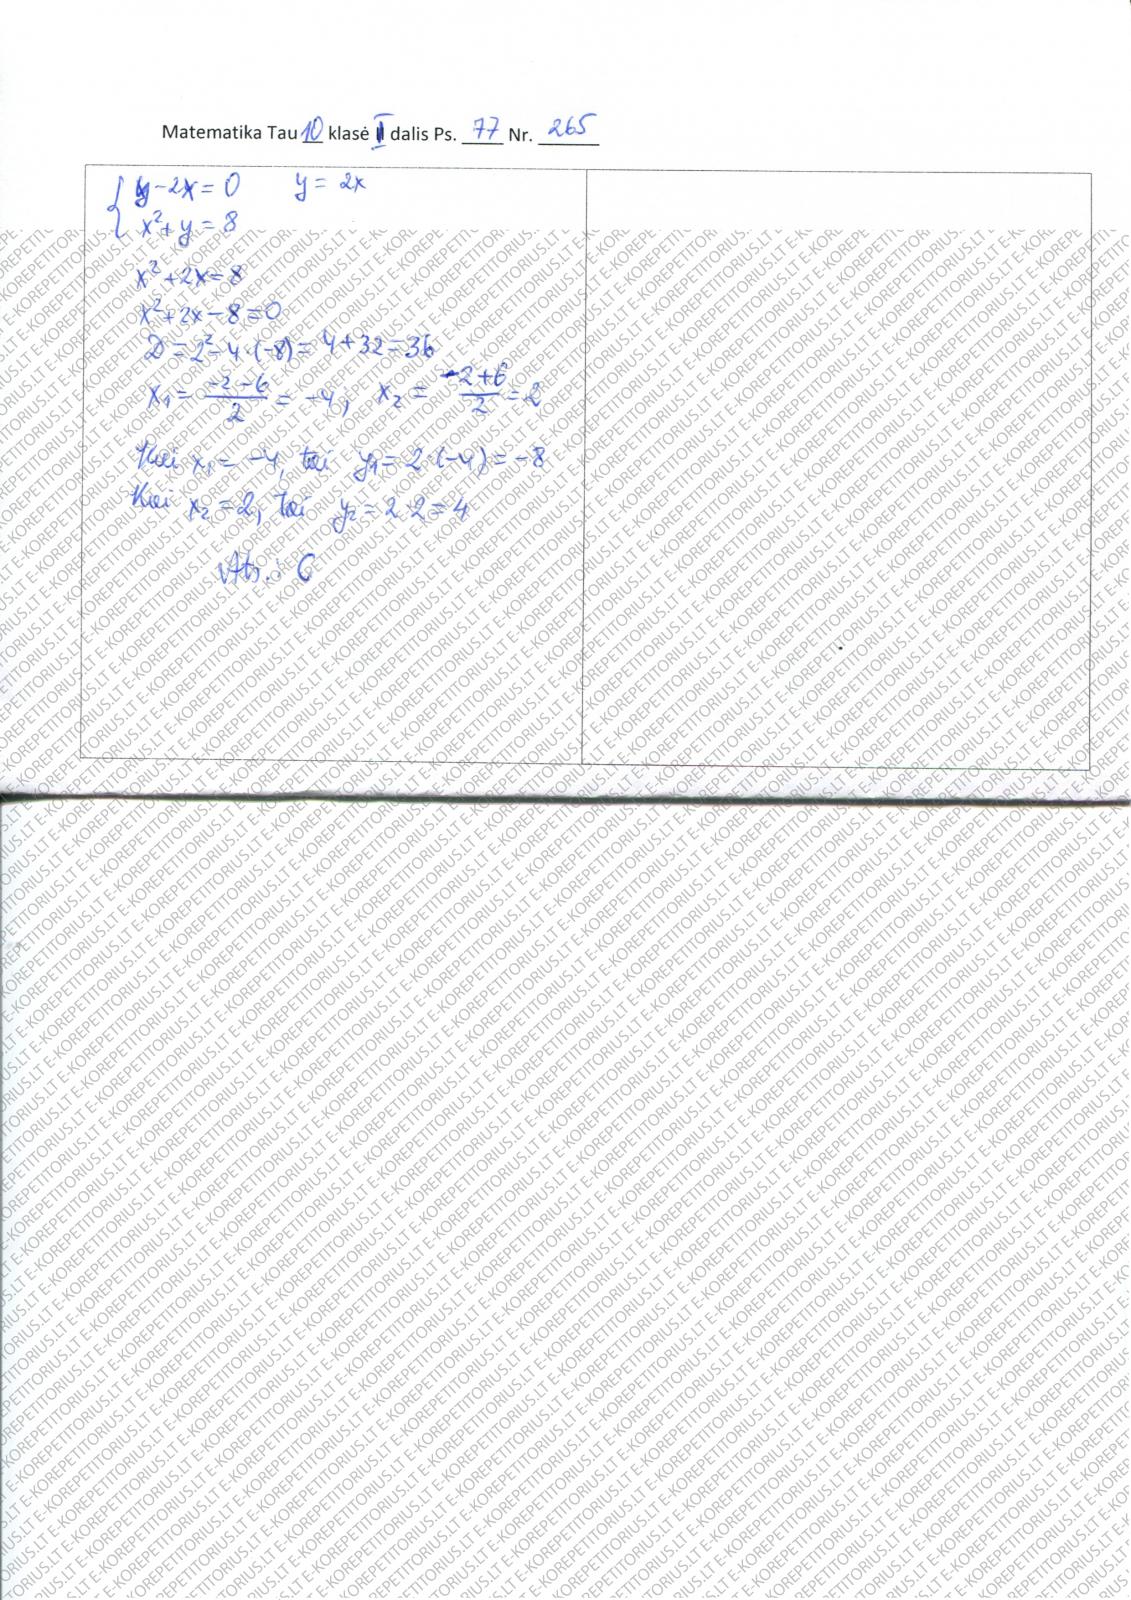 Matematika Tau 10 klasė II dalis Ps. 77 Nr. 265
{ y - 2x = 0 y = 2x
x² + y = 8
x² + 2x = 8
x² + 2x - 8 = 0
D = 2² - 4·(-8) = 4 + 32 = 36
x₁ = (-2-6)/2 = -4; x₂ = (-2+6)/2 = 2
Kai x₁ = -4, tai y₁ = 2·(-4) = -8
Kai x₂ = 2, tai y₂ = 2·2 = 4
Ats.: C
E-KOREPETITORIUS.LT